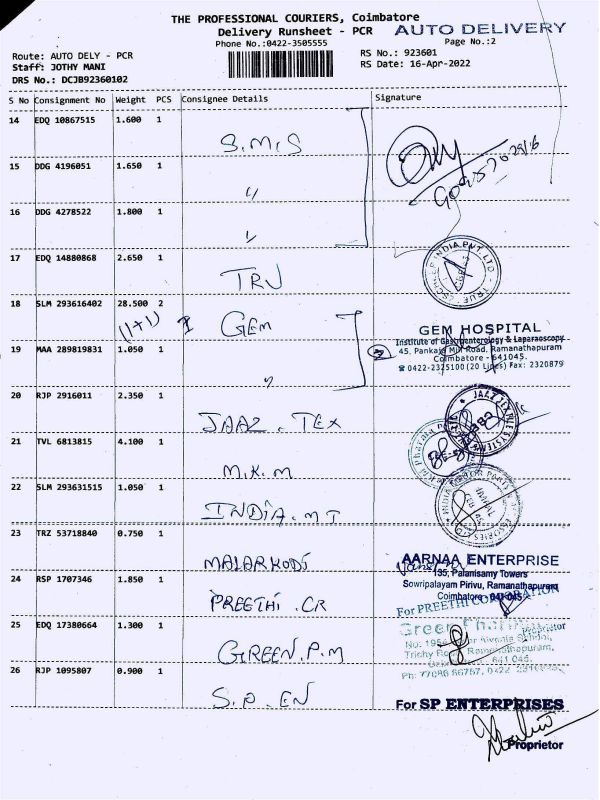 THE PROFESSIONAL COURIERS, Coimbatore
Delivery Runsheet - PCR AUTO DELIVERY
Phone No.:0422-3505555 Page No.:2
Route: AUTO DELY - PCR RS No.: 923601
Staff: JOTHY MANI RS Date: 16-Apr-2022
DRS No.: DCJB92360102
S No Consignment No Weight PCS Consignee Details Signature
14 EDQ 10867515 1.600 1
S.M.S
15 DDG 4196051 1.650 1
"
16 DDG 4278522 1.800 1
"
17 EDQ 14880868 2.650 1
TRU
18 SLM 293616402 28.500 2
(1+1) GEM
GEM HOSPITAL
Institute of Gastroenterology & Laparaoscopy
19 MAA 289819831 1.050 1
45, Pankaja Mill Road, Ramanathapuram
Coimbatore - 641045.
☎ 0422-2325100 (20 Lines) Fax: 2320879
"
20 RJP 2916011 2.350 1
JAAZ. TEX
21 TVL 6813815 4.100 1
M.K.M
22 SLM 293631515 1.050 1
INDIA. MT
23 TRZ 53718840 0.750 1
MALARKODI
AARNAA ENTERPRISE
135, Palanisamy Towers
24 RSP 1707346 1.850 1
Sowripalayam Pirivu, Ramanathapuram
Coimbatore - 641 045
PREETHI .CR
For PREETHI CORPORATION
25 EDQ 17380664 1.300 1
Proprietor
GREEN.P.M
26 RJP 1095807 0.900 1
S.P. EN
For SP ENTERPRISES
Proprietor